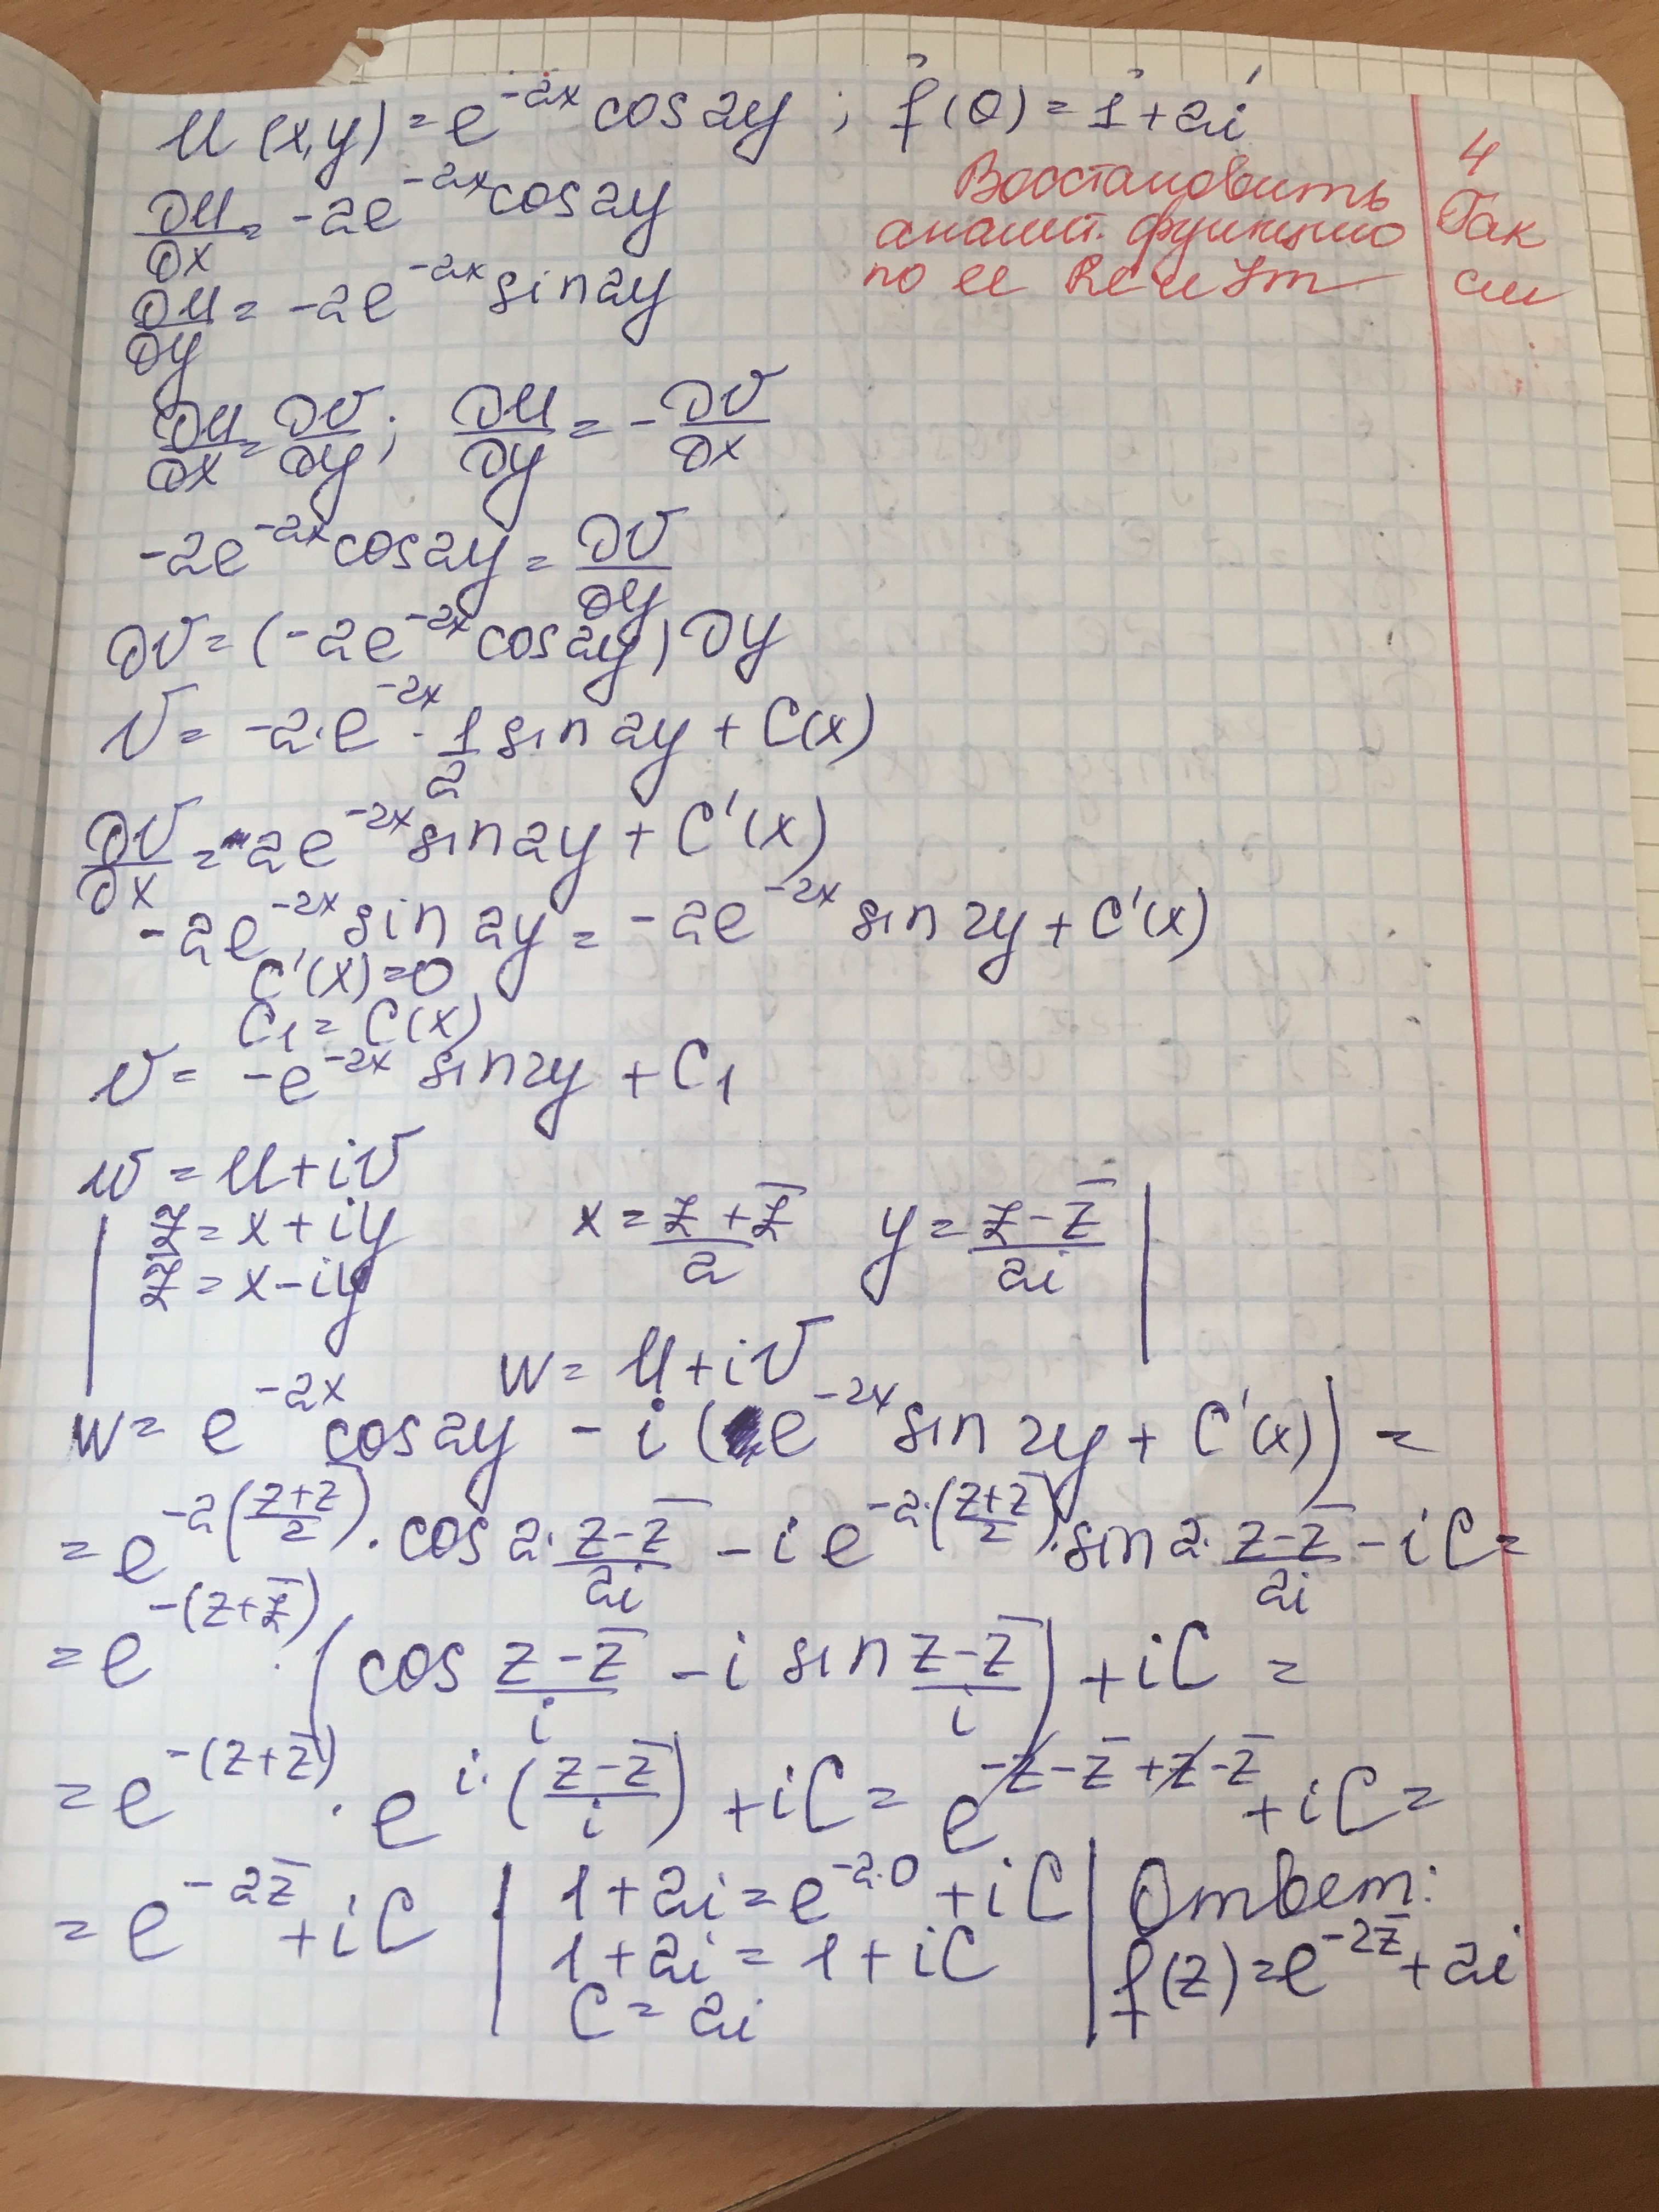 u(x,y) = e^{-2x} cos2y ; f(0) = 1+2i
Восстановить
аналит. функцию
по ее Re и Im
4
Так
∂u/∂x = -2e^{-2x} cos2y
∂u/∂y = -2e^{-2x} sin2y
∂u/∂x = ∂v/∂y ; ∂u/∂y = -∂v/∂x
-2e^{-2x} cos2y = ∂v/∂y
∂v = (-2e^{-2x} cos2y) ∂y
v = -2·e^{-2x} · 1/2 sin2y + C(x)
∂v/∂x = 2e^{-2x} sin2y + C'(x)
-2e^{-2x} sin2y = -2e^{-2x} sin2y + C'(x)
C'(x) = 0
C_1 = C(x)
v = -e^{-2x} sin2y + C_1
w = u+iv
z = x+iy x = (z+z̄)/2 y = (z-z̄)/2i
z̄ = x-iy
w = u+iv
w = e^{-2x} cos2y - i(e^{-2x} sin2y + C'(x)) =
= e^{-2((z+z̄)/2)} · cos2·(z-z̄)/2i - i e^{-2·((z+z̄)/2)} · sin2·(z-z̄)/2i - iC =
= e^{-(z+z̄)} · (cos (z-z̄)/i - i sin (z-z̄)/i) + iC =
= e^{-(z+z̄)} · e^{i·((z-z̄)/i)} + iC = e^{-z-z̄+z-z̄} + iC =
= e^{-2z̄} + iC
1+2i = e^{-2·0} + iC
1+2i = 1+iC
C = 2i
Ответ:
f(z) = e^{-2z̄} + 2i